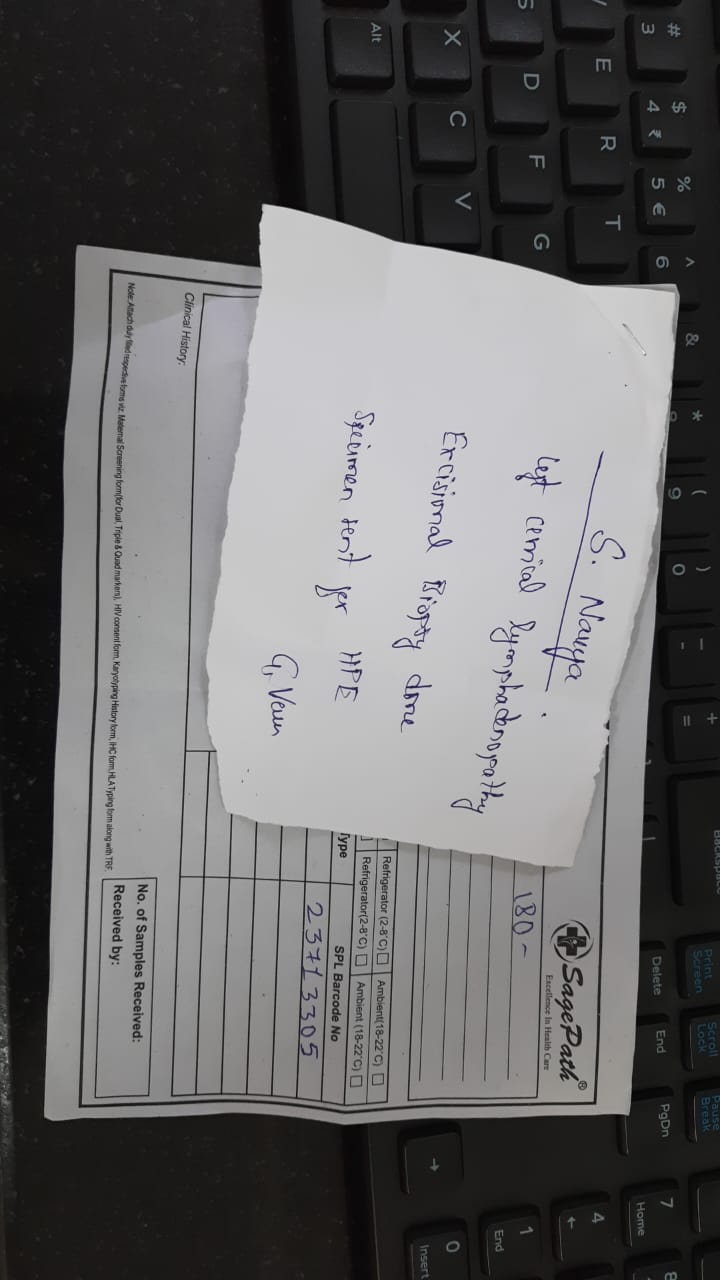 S. Navya
Left Cervical lymphadenopathy
Excisional Biopsy done
Specimen sent for HPE
SagePath®
Excellence In Health Care
180-
Refrigerator (2-8°C) Ambient(18-22°C)
Refrigerator(2-8°C) Ambient (18-22°C)
Type
SPL Barcode No
23713305
Clinical History:
No. of Samples Received:
Received by:
Note: Attach duly filled respective forms viz. Maternal Screening form(for Dual, Triple & Quad markers), HIV consent form, Karyotyping History form, IHC form, HLA Typing form along with TRF.
# 3
$ 4 ₹
% 5 €
^ 6
&
*
( 9
) 0
- -
+ =
Backspace
E
R
T
D
F
G
X
C
V
Alt
Print Screen
Scroll Lock
Pause Break
Delete
End
PgDn
7 Home
8
4 ←
1 End
0 Insert